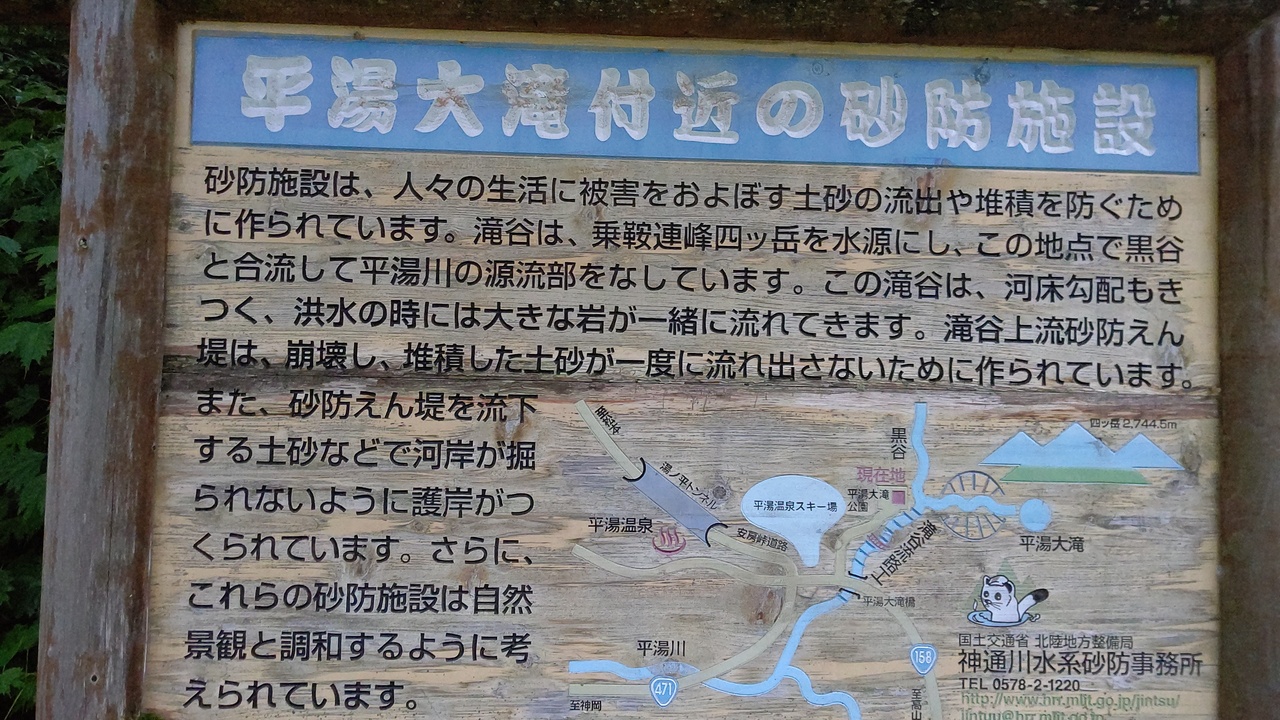 平湯大滝付近の砂防施設
砂防施設は、人々の生活に被害をおよぼす土砂の流出や堆積を防ぐため
に作られています。滝谷は、乗鞍連峰四ッ岳を水源にし、この地点で黒谷
と合流して平湯川の源流部をなしています。この滝谷は、河床勾配もき
つく、洪水の時には大きな岩が一緒に流れてきます。滝谷上流砂防えん
堤は、崩壊し、堆積した土砂が一度に流れ出さないために作られています。
また、砂防えん堤を流下
する土砂などで河岸が掘
られないように護岸がつ
くられています。さらに、
これらの砂防施設は自然
景観と調和するように考
えられています。
四ッ岳 2,744.5m
黒谷
現在地
平湯大滝
公園
湯ノ平トンネル
平湯温泉スキー場
平湯温泉
安房峠道路
滝谷流路工
平湯大滝
平湯大滝橋
平湯川
158
471
至神岡
至高山
国土交通省 北陸地方整備局
神通川水系砂防事務所
TEL 0578-2-1220
http://www.hrr.mlit.go.jp/jintsu/